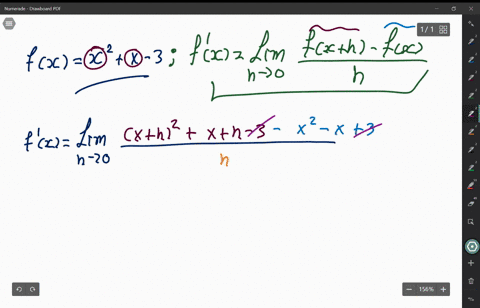 Numerade - Drawboard PDF
1/1
f(x) = x² + x - 3 ; f'(x) = Lim h→0 f(x+h) - f(x) / h
f'(x) = Lim h→0 (x+h)² + x + h - 3 - x² - x + 3 / h
156%